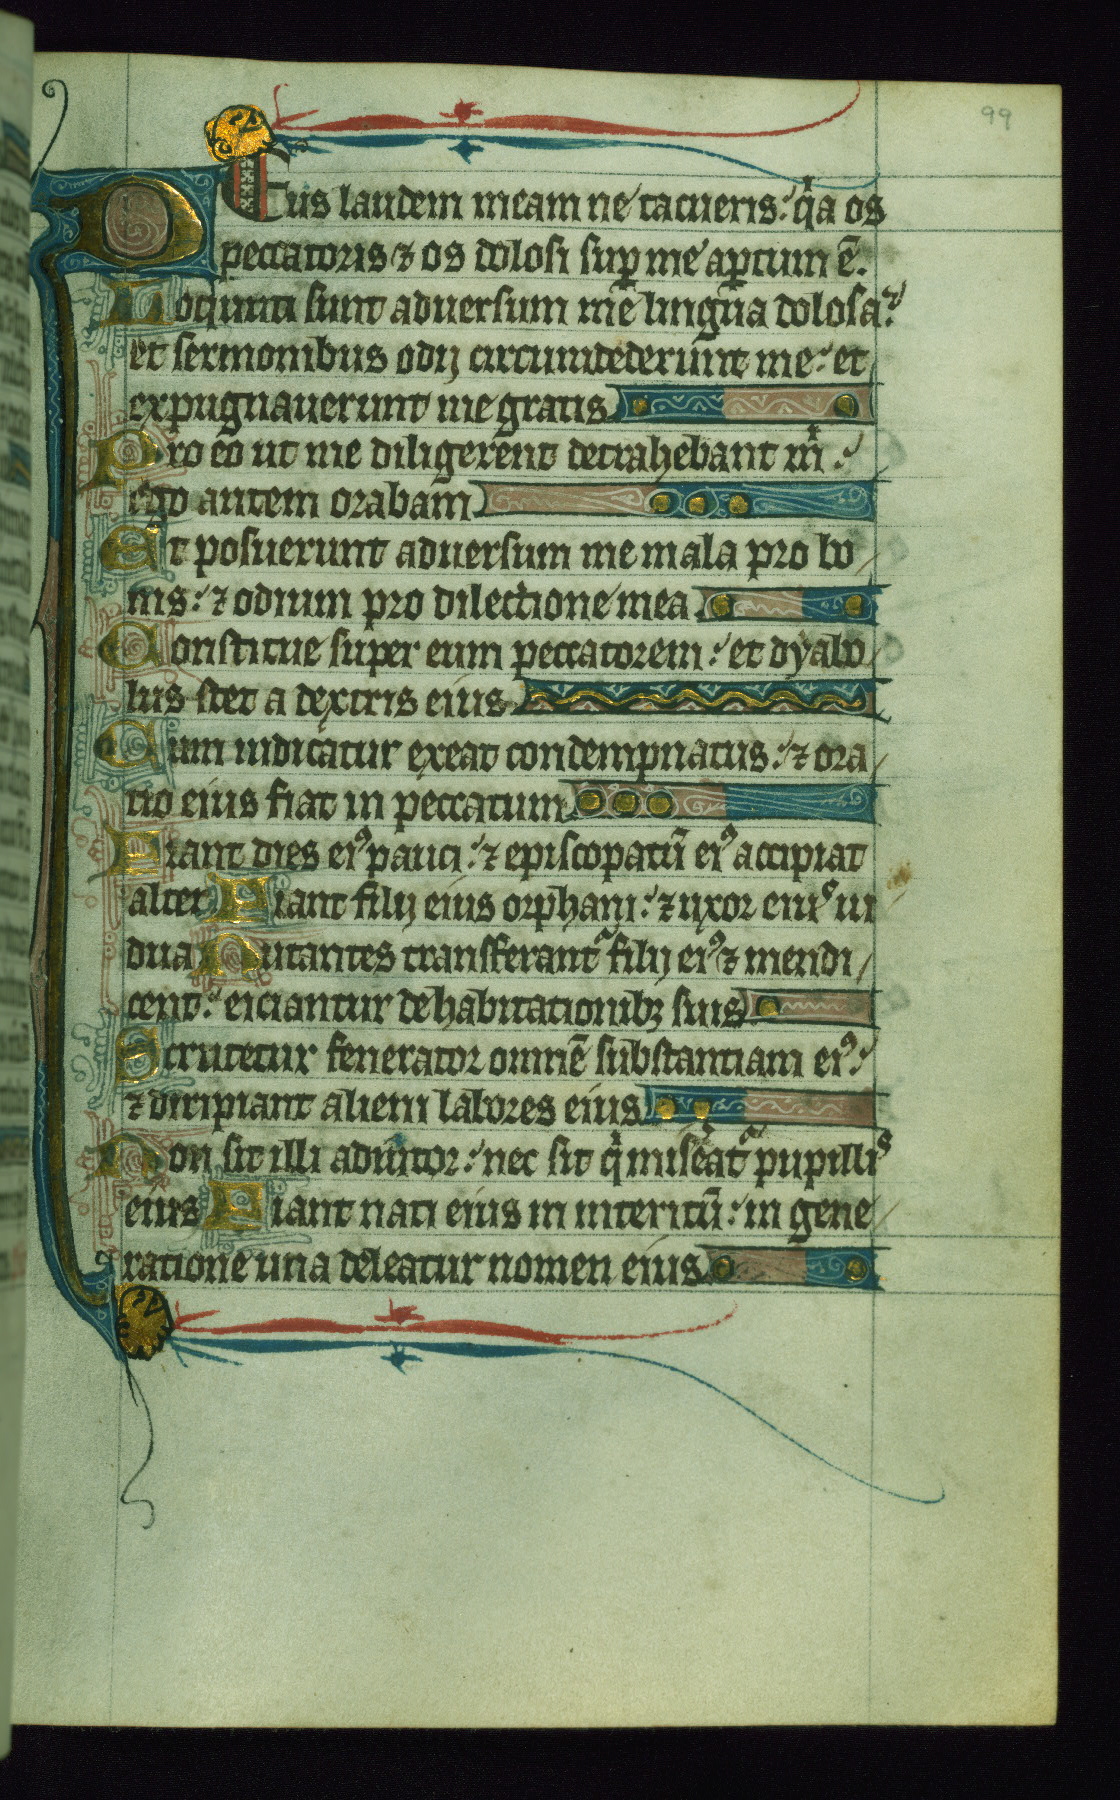 99
DEus laudem meam ne tacueris: qͥa os
peccatoris ⁊ os dolosi suꝑ me aꝑtum ē.
Locuti sunt aduersum me lingua dolosa:
et sermonibus odij circumdederunt me: et
expugnauerunt me gratis
Pro eo ut me diligerent detrahebant mͥ:
ego autem orabam
Et posuerunt aduersum me mala pro bo
nis: ⁊ odium pro dilectione mea
Constitue super eum peccatorem: et dyabo
lus stet a dextris eius
Cum iudicatur exeat condempnatus: ⁊ ora
tio eius fiat in peccatum
Fiant dies eiꝰ pauci: ⁊ episcopatū eiꝰ accipiat
alter Fiant filij eius orphani: ⁊ uxor eiuˢ ui
dua Nutantes transferantᷣ filij eiꝰ ⁊ mendi
cent: eiciantur de habitationibꝫ suis
Scrutetur fenerator omnē substantiam eiꝰ:
⁊ diripiant alieni labores eius
Non sit illi adiutor: nec sit qͥ misereatᷣ pupilliˢ
eius Fiant nati eius in interitū: in gene
ratione una deleatur nomen eius